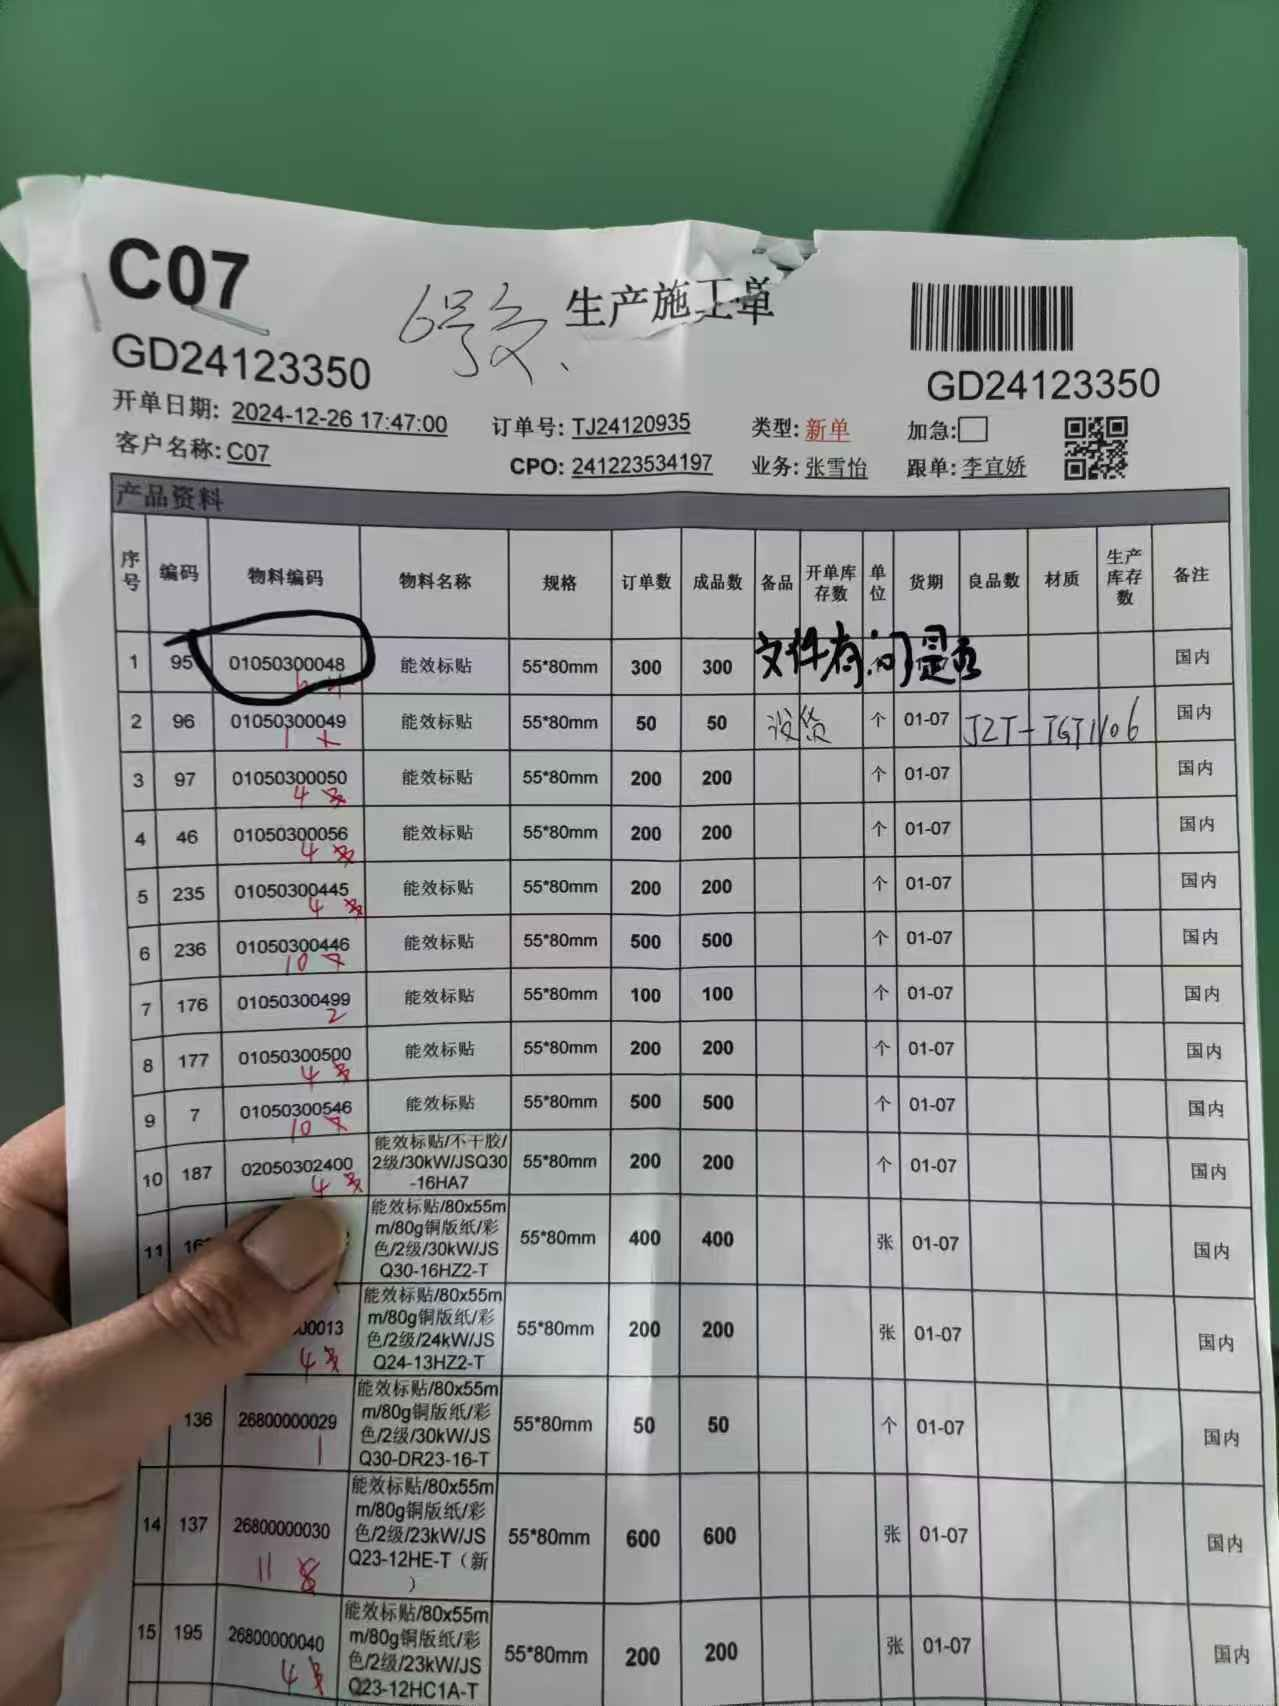 C07
6号交、
生产施工单
GD24123350
GD24123350
开单日期: 2024-12-26 17:47:00
订单号: TJ24120935
类型: 新单
加急:
客户名称: C07
CPO: 241223534197
业务: 张雪怡
跟单: 李宜娇
产品资料
序号 编码 物料编码 物料名称 规格 订单数 成品数 备品 开单库存数 单位 货期 良品数 材质 生产库存数 备注
1 95 01050300048 能效标贴 55*80mm 300 300 文件有问是否 国内
2 96 01050300049 能效标贴 55*80mm 50 50 没货 个 01-07 JZT-TGT1106 国内
1
3 97 01050300050 能效标贴 55*80mm 200 200 个 01-07 国内
4
4 46 01050300056 能效标贴 55*80mm 200 200 个 01-07 国内
4
5 235 01050300445 能效标贴 55*80mm 200 200 个 01-07 国内
4
6 236 01050300446 能效标贴 55*80mm 500 500 个 01-07 国内
10
7 176 01050300499 能效标贴 55*80mm 100 100 个 01-07 国内
2
8 177 01050300500 能效标贴 55*80mm 200 200 个 01-07 国内
4
9 7 01050300546 能效标贴 55*80mm 500 500 个 01-07 国内
10
10 187 02050302400 能效标贴/不干胶/2级/30kW/JSQ30-16HA7 55*80mm 200 200 个 01-07 国内
4
11 能效标贴/80x55mm/80g铜版纸/彩色/2级/30kW/JSQ30-16HZ2-T 55*80mm 400 400 张 01-07 国内
00013 能效标贴/80x55mm/80g铜版纸/彩色/2级/24kW/JSQ24-13HZ2-T 55*80mm 200 200 张 01-07 国内
4
136 26800000029 能效标贴/80x55mm/80g铜版纸/彩色/2级/30kW/JSQ30-DR23-16-T 55*80mm 50 50 个 01-07 国内
1
14 137 26800000030 能效标贴/80x55mm/80g铜版纸/彩色/2级/23kW/JSQ23-12HE-T（新） 55*80mm 600 600 张 01-07 国内
11 8
15 195 26800000040 能效标贴/80x55mm/80g铜版纸/彩色/2级/23kW/JSQ23-12HC1A-T 55*80mm 200 200 张 01-07 国内
4